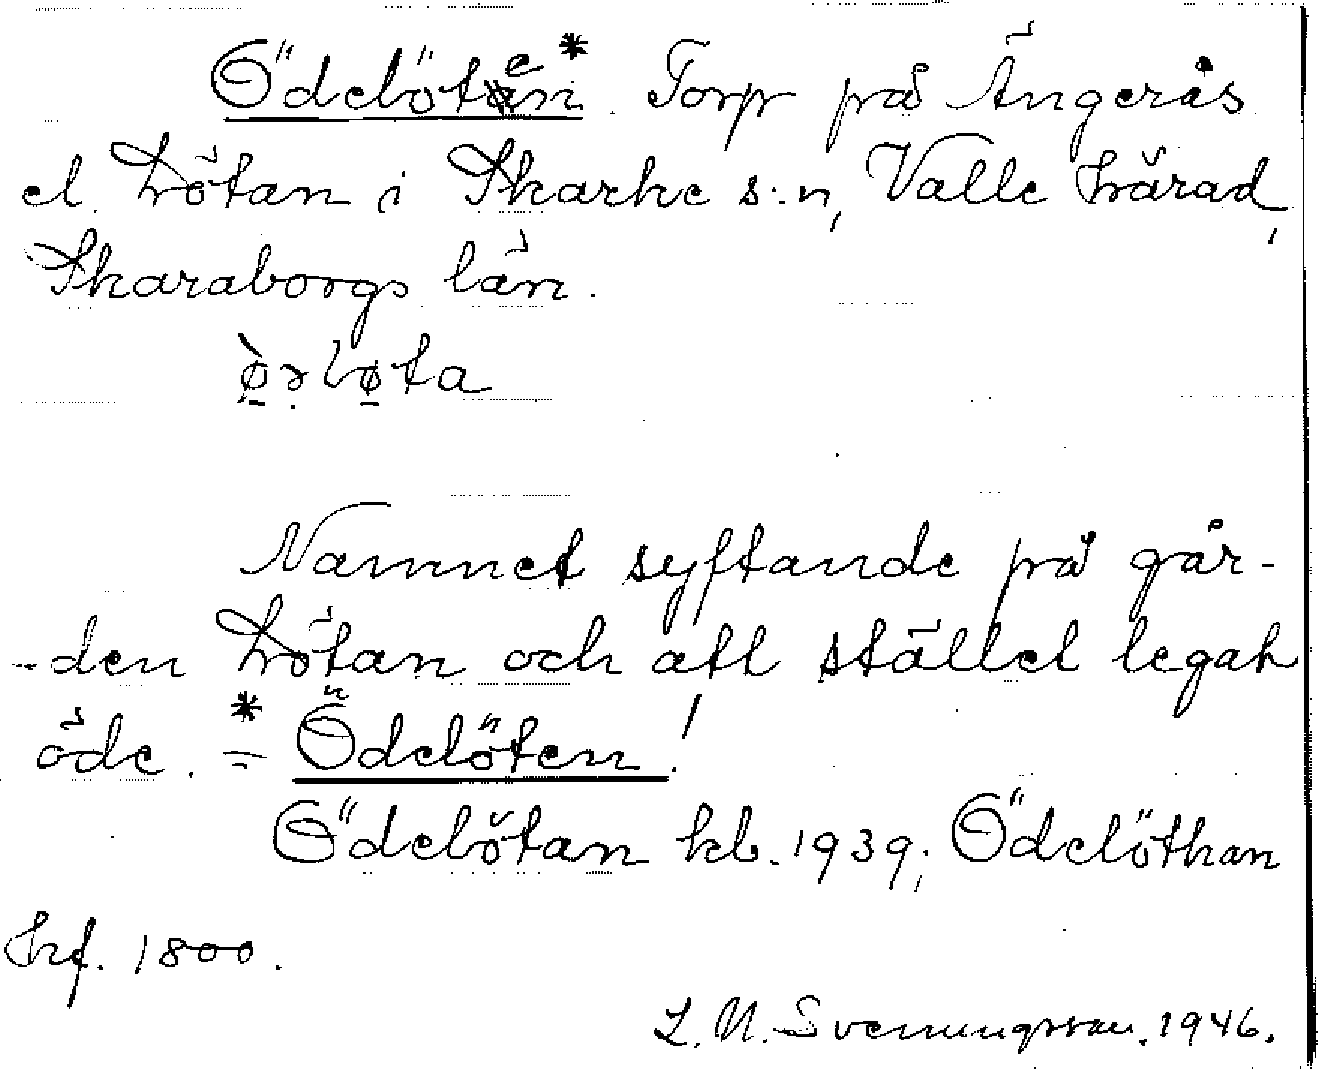 Ödelöten* Torp på Ängerås
el. Lötan i Skarke s:n, Valle härad,
Skaraborgs län.
Namnet syftande på går-
-den Lötan och att stället legat
öde. * = Ödelöten!
Ödelötan kb. 1939; Ödelöthan
hf. 1800.
L. N. Svenungsson. 1946.